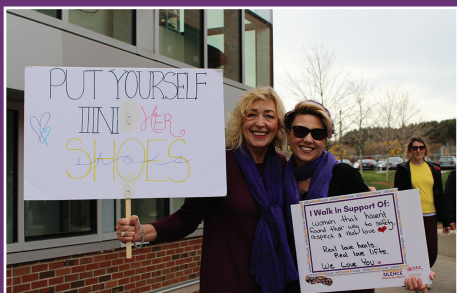 PUT YOURSELF
IIN HER
SHOES
I Walk In Support Of:
women that haven't
found their way to safety,
respect & real love
Real love heals.
Real love lifts.
We Love You
SILENCE